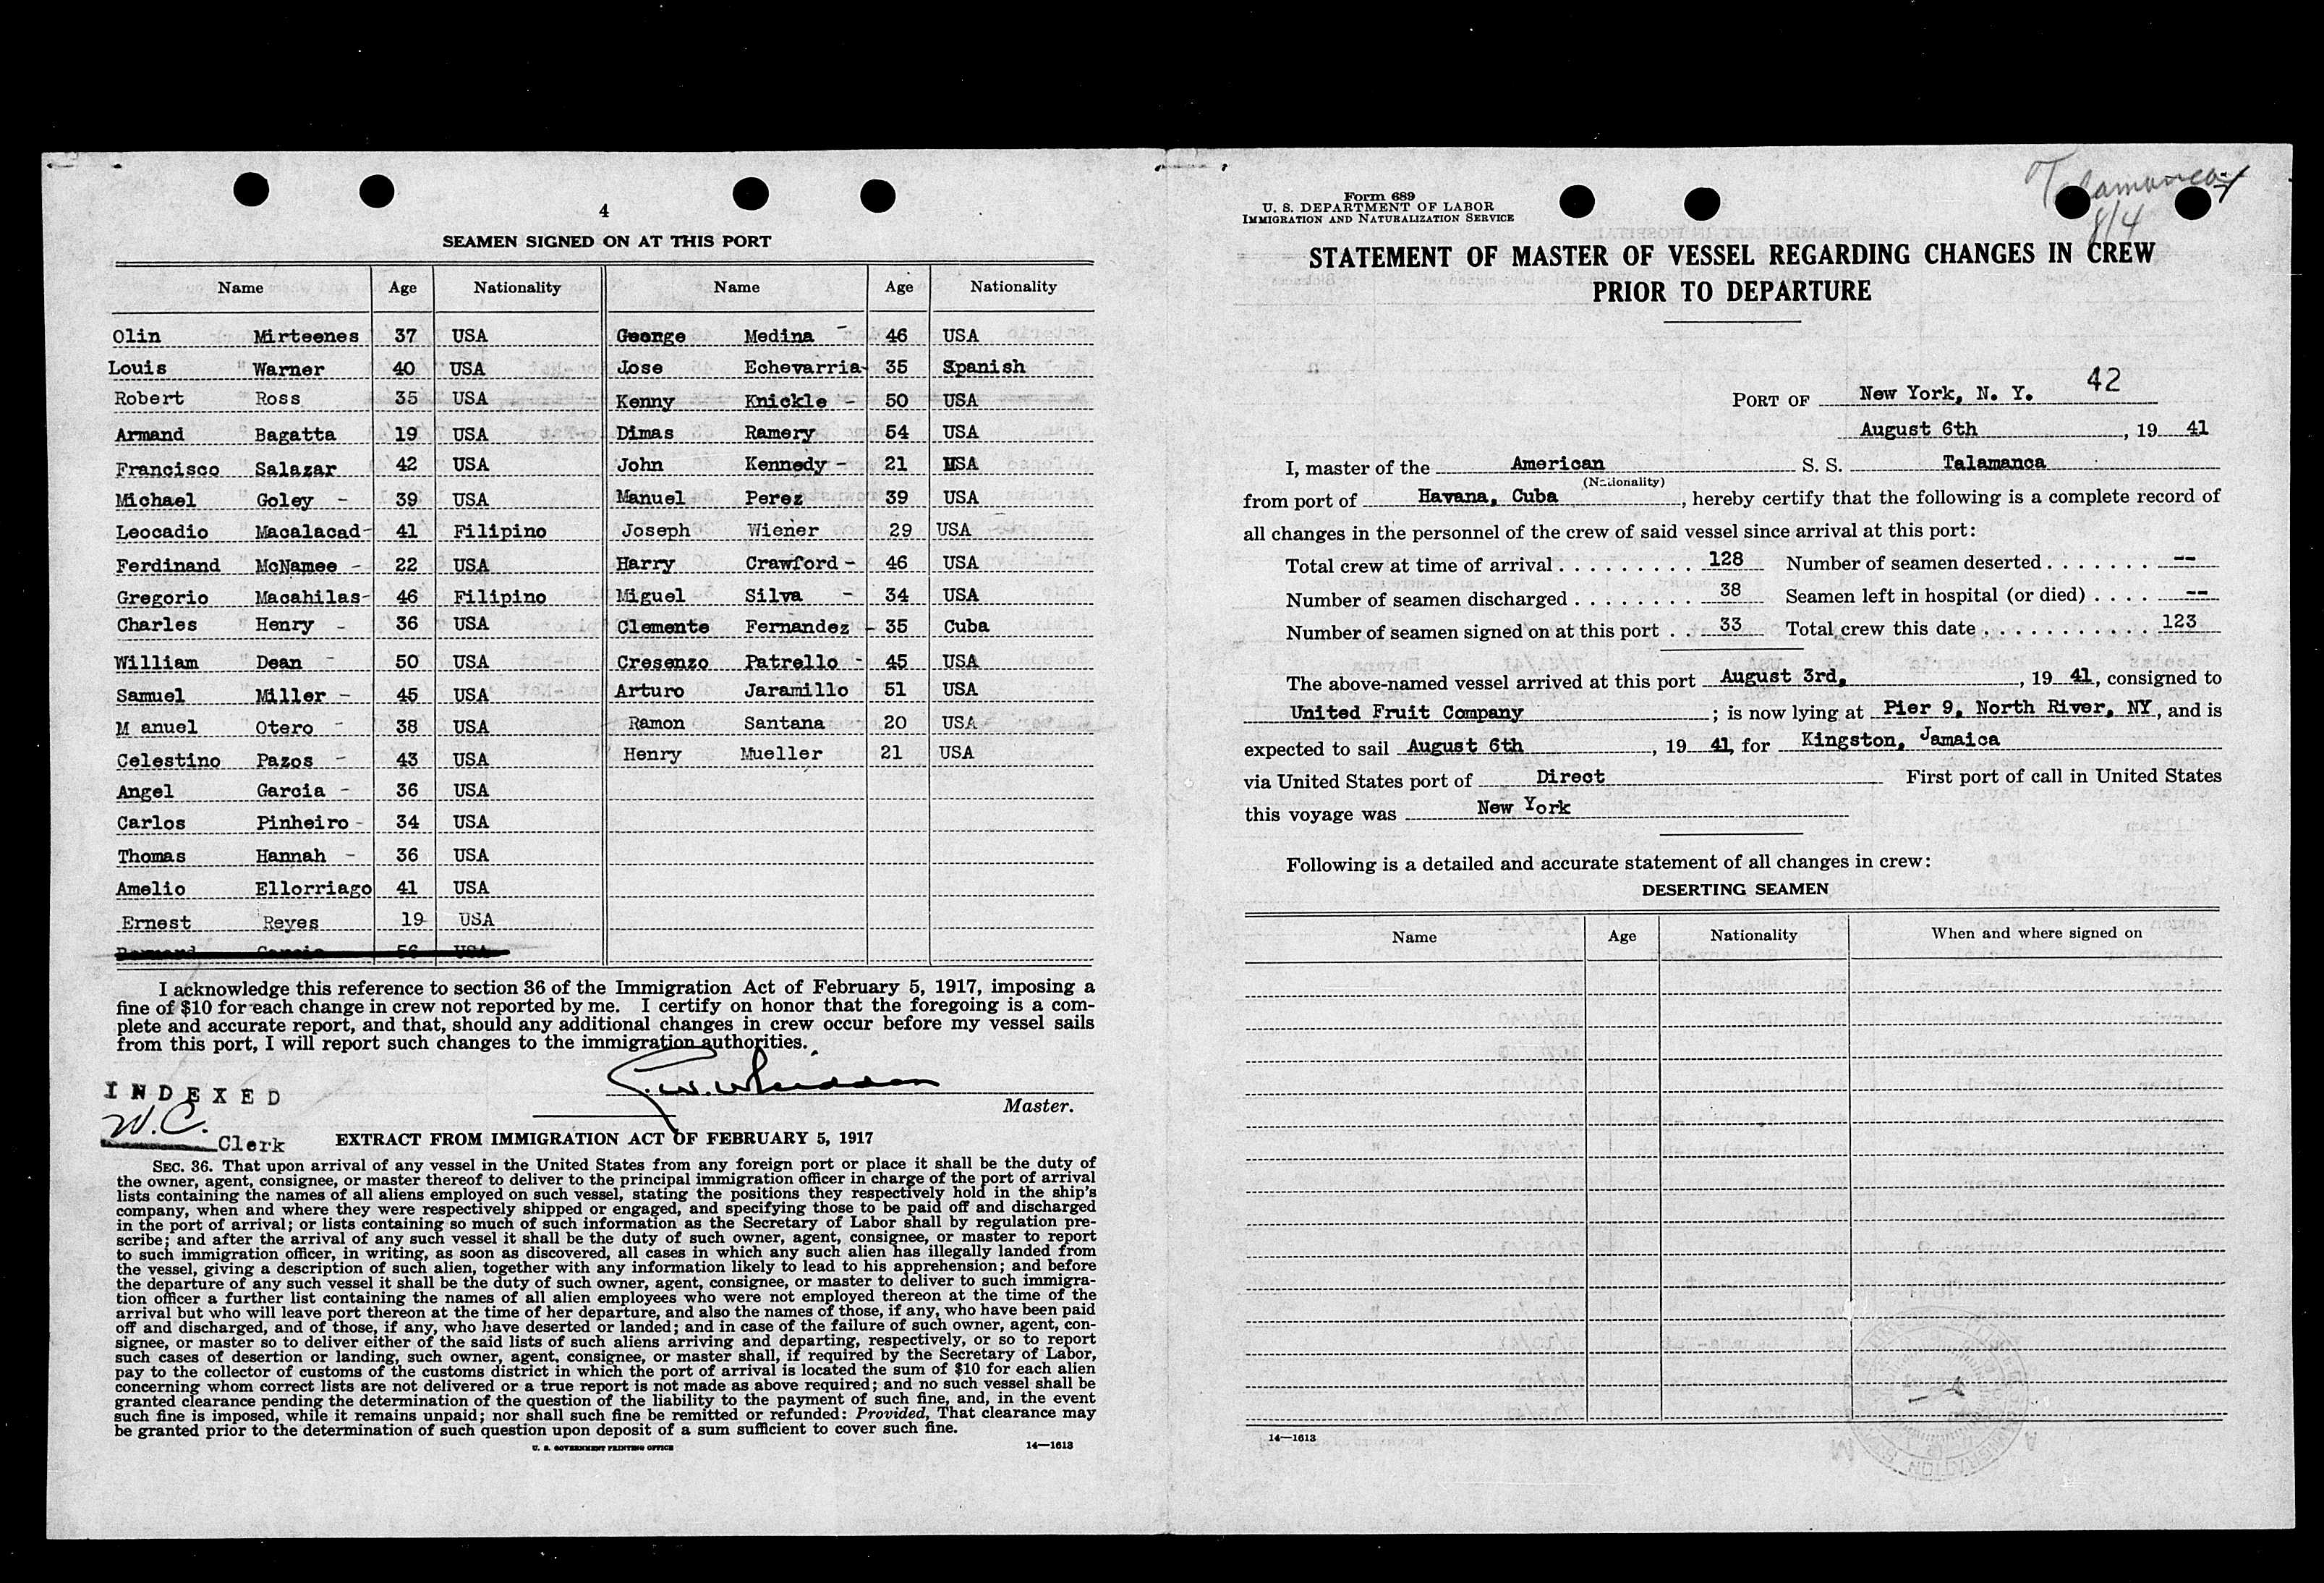 4
SEAMEN SIGNED ON AT THIS PORT
Name Age Nationality Name Age Nationality
Olin Mirteenes 37 USA George Medina - 46 USA
Louis " Warner 40 USA Jose Echevarria- 35 Spanish
Robert Ross 35 USA Kenny Knickle - 50 USA
Armand Bagatta 19 USA Dimas Ramery 54 USA
Francisco Salazar 42 USA John Kennedy - 21 USA
Michael Goley - 39 USA Manuel Perez 39 USA
Leocadio Macalacad- 41 Filipino Joseph Wiener 29 USA
Ferdinand McNamee - 22 USA Harry Crawford - 46 USA
Gregorio Macahilas- 46 Filipino Miguel Silva - 34 USA
Charles Henry - 36 USA Clemente Fernandez - 35 Cuba
William Dean - 50 USA Cresenzo Patrello - 45 USA
Samuel Miller - 45 USA Arturo Jaramillo 51 USA
M anuel Otero - 38 USA Ramon Santana 20 USA
Celestino Pazos - 43 USA Henry Mueller 21 USA
Angel Garcia - 36 USA
Carlos Pinheiro - 34 USA
Thomas Hannah - 36 USA
Amelio Ellorriago 41 USA
Ernest Reyes 19 USA
Garcia 56 USA
I acknowledge this reference to section 36 of the Immigration Act of February 5, 1917, imposing a
fine of $10 for each change in crew not reported by me. I certify on honor that the foregoing is a com-
plete and accurate report, and that, should any additional changes in crew occur before my vessel sails
from this port, I will report such changes to the immigration authorities.
INDEXED
Master.
W.C.
Clerk
EXTRACT FROM IMMIGRATION ACT OF FEBRUARY 5, 1917
SEC. 36. That upon arrival of any vessel in the United States from any foreign port or place it shall be the duty of
the owner, agent, consignee, or master thereof to deliver to the principal immigration officer in charge of the port of arrival
lists containing the names of all aliens employed on such vessel, stating the positions they respectively hold in the ship's
company, when and where they were respectively shipped or engaged, and specifying those to be paid off and discharged
in the port of arrival; or lists containing so much of such information as the Secretary of Labor shall by regulation pre-
scribe; and after the arrival of any such vessel it shall be the duty of such owner, agent, consignee, or master to report
to such immigration officer, in writing, as soon as discovered, all cases in which any such alien has illegally landed from
the vessel, giving a description of such alien, together with any information likely to lead to his apprehension; and before
the departure of any such vessel it shall be the duty of such owner, agent, consignee, or master to deliver to such immigra-
tion officer a further list containing the names of all alien employees who were not employed thereon at the time of the
arrival but who will leave port thereon at the time of her departure, and also the names of those, if any, who have been paid
off and discharged, and of those, if any, who have deserted or landed; and in case of the failure of such owner, agent, con-
signee, or master so to deliver either of the said lists of such aliens arriving and departing, respectively, or so to report
such cases of desertion or landing, such owner, agent, consignee, or master shall, if required by the Secretary of Labor,
pay to the collector of customs of the customs district in which the port of arrival is located the sum of $10 for each alien
concerning whom correct lists are not delivered or a true report is not made as above required; and no such vessel shall be
granted clearance pending the determination of the question of the liability to the payment of such fine, and, in the event
such fine is imposed, while it remains unpaid; nor shall such fine be remitted or refunded: Provided, That clearance may
be granted prior to the determination of such question upon deposit of a sum sufficient to cover such fine.
U. S. GOVERNMENT PRINTING OFFICE 14—1613
Talamanca
8/4
Form 689
U. S. DEPARTMENT OF LABOR
IMMIGRATION AND NATURALIZATION SERVICE
STATEMENT OF MASTER OF VESSEL REGARDING CHANGES IN CREW
PRIOR TO DEPARTURE
42
PORT OF New York, N. Y.
August 6th, 19 41
I, master of the American S. S. Talamanca
(Nationality)
from port of Havana, Cuba, hereby certify that the following is a complete record of
all changes in the personnel of the crew of said vessel since arrival at this port:
Total crew at time of arrival . . . . . . . . . . 128 Number of seamen deserted . . . . . . . --
Number of seamen discharged . . . . . . . . 38 Seamen left in hospital (or died) . . . . --
Number of seamen signed on at this port . . 33 Total crew this date . . . . . . . . . . . 123
The above-named vessel arrived at this port August 3rd, , 19 41, consigned to
United Fruit Company ; is now lying at Pier 9, North River, NY, and is
expected to sail August 6th, 19 41, for Kingston, Jamaica
via United States port of Direct First port of call in United States
this voyage was New York
Following is a detailed and accurate statement of all changes in crew:
DESERTING SEAMEN
Name Age Nationality When and where signed on
14—1613